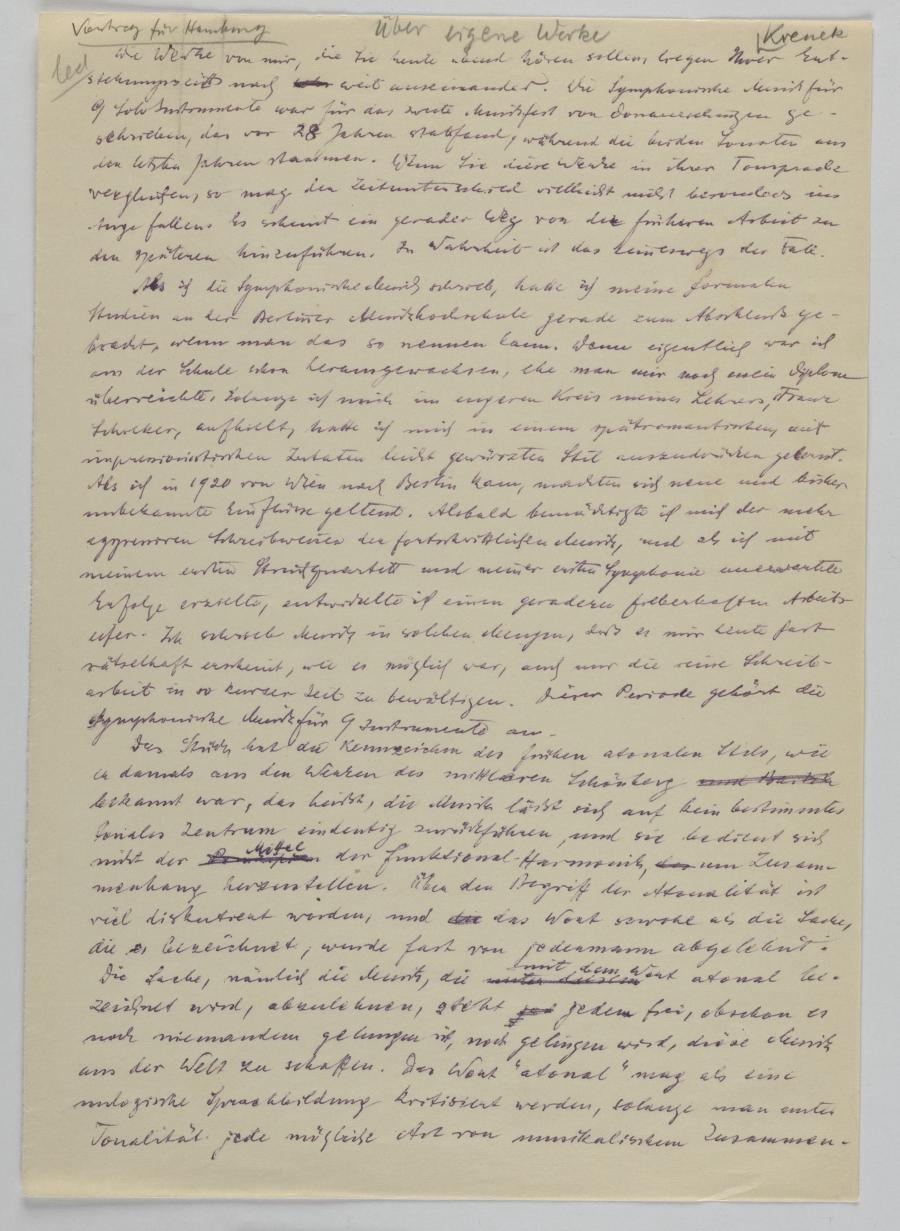 Vortrag für Hamburg
Über eigene Werke
Krenek
led
Die Werke von mir, die Sie heute abend hören sollen, liegen ihrer Ent-
stehungszeit nach weit auseinander. Die Symphonische Musik für
9 Solo Instrumente war für das zweite Musikfest von Donaueschingen ge-
schrieben, das vor 28 Jahren stattfand, während die beiden Sonaten aus
den letzten Jahren stammen. Wenn Sie diese Werke in ihrer Tonsprache
vergleichen, so mag der Zeitunterschied vielleicht nicht besonders ins
Auge fallen. Es scheint ein gerader Weg von der früheren Arbeit zu
den späteren hinzuführen. In Wahrheit ist das keineswegs der Fall.
Als ich die Symphonische Musik schrieb, hatte ich meine formalen
Studien an der Berliner Musikhochschule gerade zum Abschluß ge-
bracht, wenn man das so nennen kann. Denn eigentlich war ich
aus der Schule schon herausgewachsen, ehe man mir noch mein Diplom
überreichte. Solange ich mich im engeren Kreis meines Lehrers, Franz
Schreker, aufhielt, hatte ich mich in einem spätromantischen, mit
impressionistischen Zutaten leicht gewürzten Stil auszudrücken gelernt.
Als ich in 1920 von Wien nach Berlin kam, machten sich neue und bisher
unbekannte Einflüsse geltend. Alsbald bemächtigte ich mich der mehr
aggressiven Schreibweisen der fortschrittlichen Musik, und als ich mit
meinem ersten Streichquartett und meiner ersten Symphonie unerwartete
Erfolge erzielte, entwickelte ich einen geradezu fieberhaften Arbeits-
eifer. Ich schrieb Musik in solchen Mengen, daß es mir heute fast
rätselhaft erscheint, wie es möglich war, auch nur die reine Schreib-
arbeit in so kurzer Zeit zu bewältigen. Dieser Periode gehört die
Symphonische Musik für 9 Instrumente an.
Das Stück hat die Kennzeichen des frühen atonalen Stils, wie
er damals aus den Werken des mittleren Schönberg und Bartók
bekannt war, das heißt, die Musik läßt sich auf kein bestimmtes
tonales Zentrum eindeutig zurückführen, und sie bedient sich
nicht der Mittel der funktional-Harmonik, um Zusam-
menhang herzustellen. Über den Begriff der Atonalität ist
viel diskutiert worden, und das Wort sowohl als die Sache,
die es bezeichnet, wurde fast von jedermann abgelehnt.
Die Sache, nämlich die Musik, die unter diesem mit dem Wort atonal be-
zeichnet wird, abzulehnen, steht jedem frei, obschon es
noch niemandem gelungen ist, noch gelingen wird, diese Musik
aus der Welt zu schaffen. Das Wort "atonal" mag als eine
unlogische Sprachbildung kritisiert werden, solange man unter
Tonalität jede mögliche Art von musikalischem Zusammen-